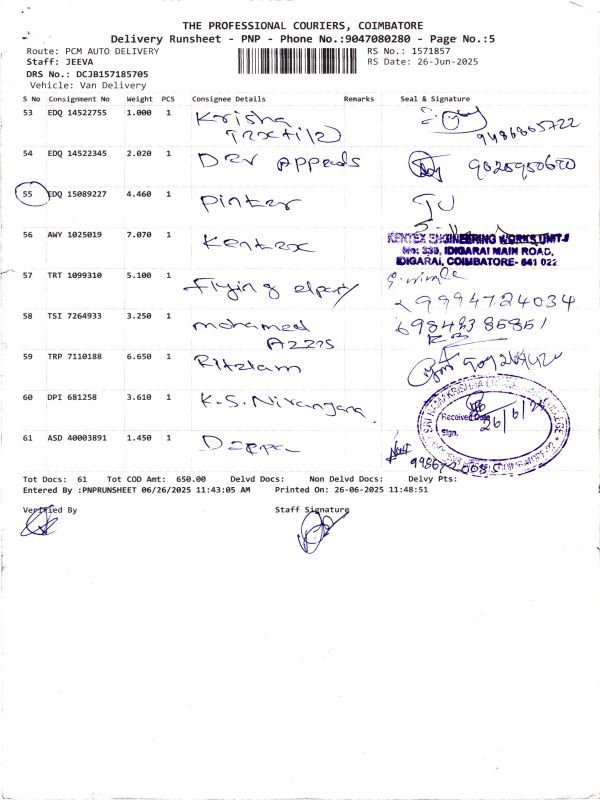 THE PROFESSIONAL COURIERS, COIMBATORE
Delivery Runsheet - PNP - Phone No.:9047080280 - Page No.:5
Route: PCM AUTO DELIVERY
RS No.: 1571857
Staff: JEEVA
RS Date: 26-Jun-2025
DRS No.: DCJB157185705
Vehicle: Van Delivery
S No Consignment No Weight PCS Consignee Details Remarks Seal & Signature
53 EDQ 14522755 1.000 1 Krisha
54 EDQ 14522345 2.020 1
55 EDQ 15089227 4.460 1 Pinter
56 AWY 1025019 7.070 1 Kentex
KENTEX ENGINEERING WORKS UNIT-I
No: 339, IDIGARAI MAIN ROAD,
IDIGARAI, COIMBATORE- 641 022.
57 TRT 1099310 5.100 1 Flying
9994724034
58 TSI 7264933 3.250 1 mohamed
59 TRP 7110188 6.650 1
60 DPI 681258 3.610 1 K.S. Niranjana
Received Date
Sign.
26/6/
61 ASD 40003891 1.450 1 Deepa
Tot Docs: 61 Tot COD Amt: 650.00 Delvd Docs: Non Delvd Docs: Delvy Pts:
Entered By :PNPRUNSHEET 06/26/2025 11:43:05 AM Printed On: 26-06-2025 11:48:51
Verified By Staff Signature